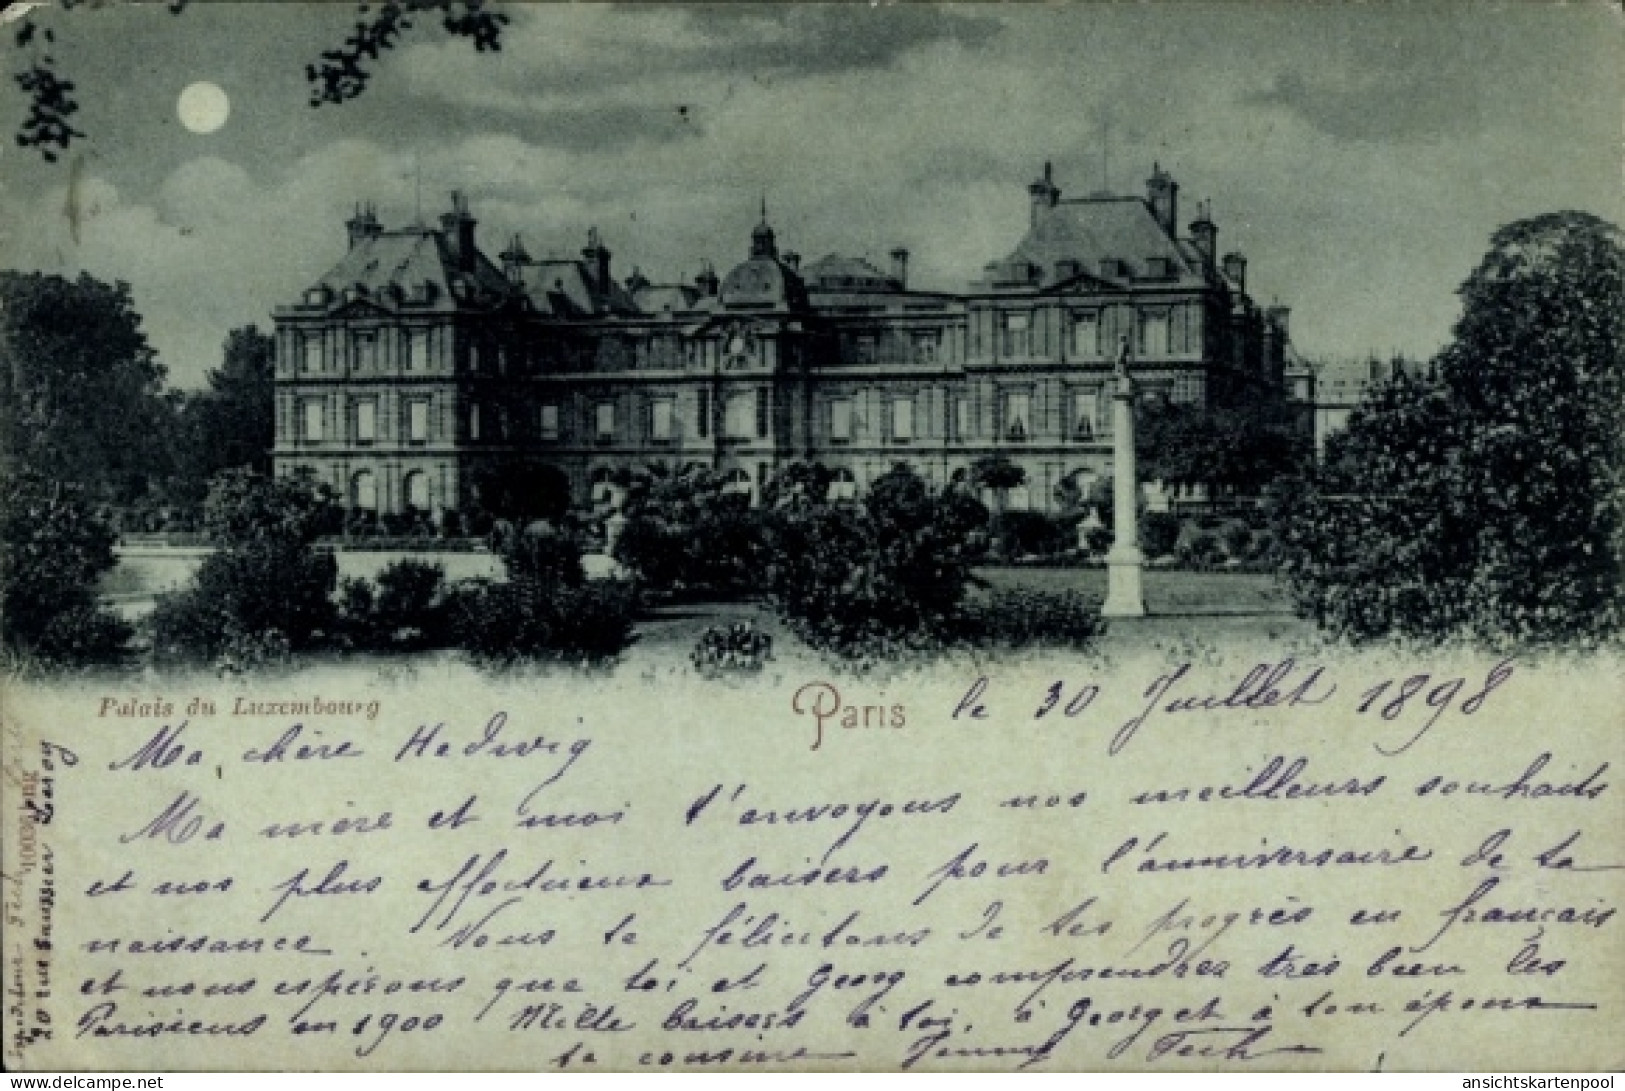 Palais du Luxembourg
Paris le 30 Juillet 1898
Ma chère Hedwig
Ma mère et moi t'envoyons nos meilleurs souhaits
et nos plus affectueux baisers pour l'anniversaire de ta
naissance. Nous te félicitons de tes progrès en français
et nous espérons que toi et Georg comprendrez très bien les
Parisiens en 1900 Mille baisers à toi, à Georg et à ton époux
ta cousine Jenny Fech
20 rue Saussier Leroy
delcampe.net
ansichtskartenpool